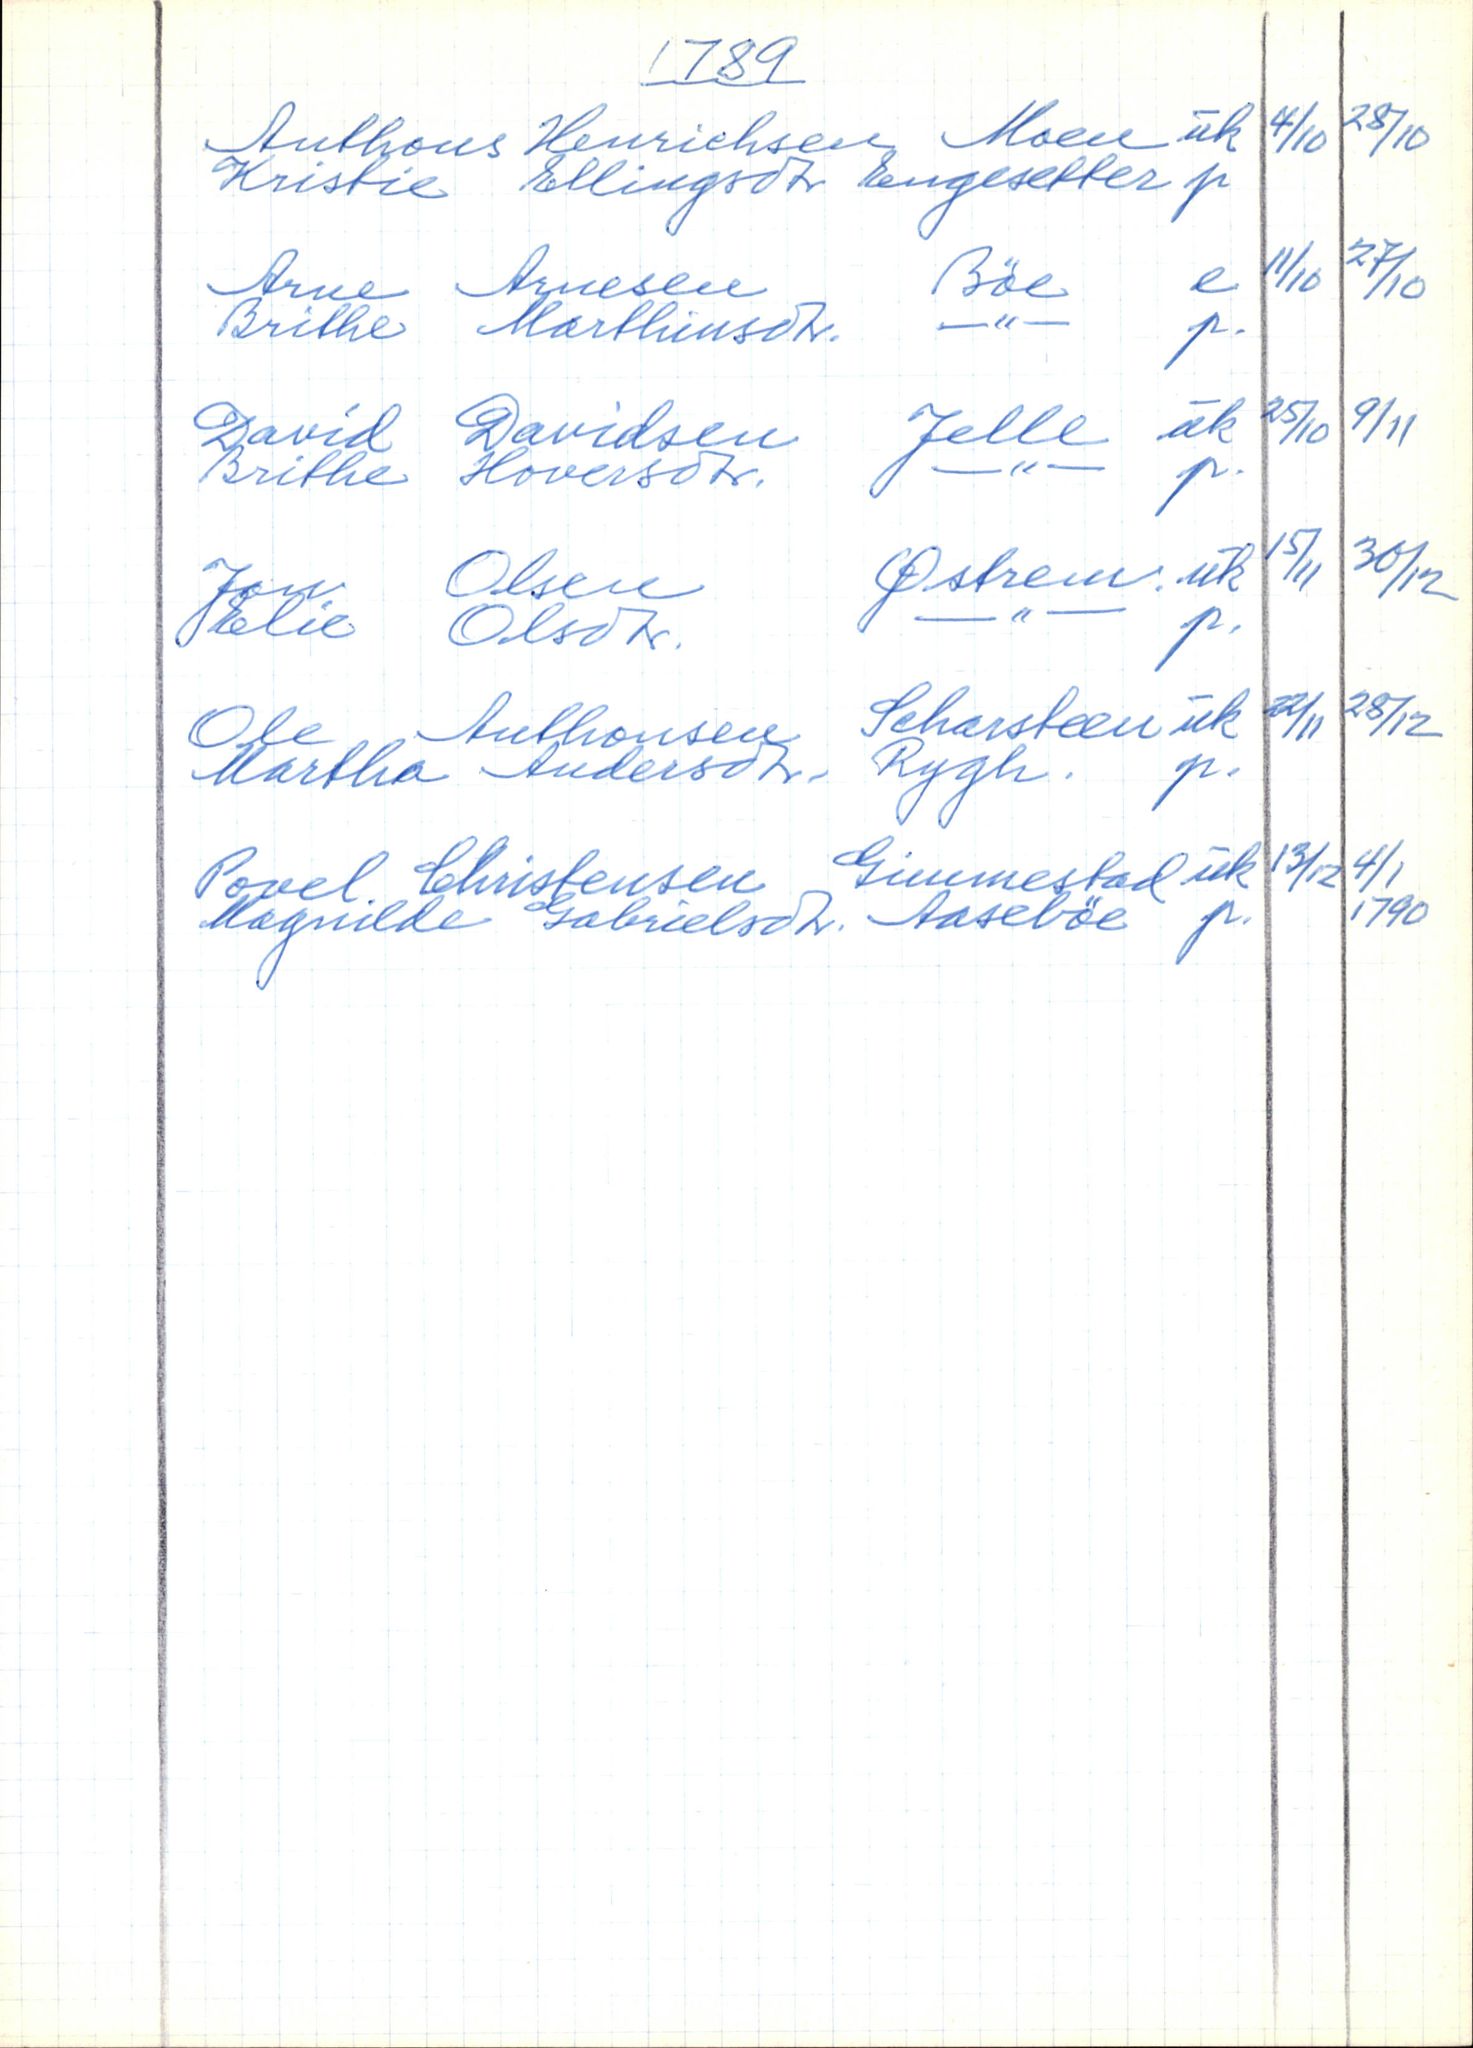 1789
Anthons Henrichsen Moen ūk 4/10 28/10
Kristie Ellingsdtr Engesetter p
Arne Arnesen Böe e 11/10 27/10
Brithe Marthinsdtr. —"— p.
David Davidsen Jelle ūk 25/10 9/11
Brithe Hoversdtr. —"— p.
Jon Olsen Østrem. ūk 15/11 30/12
Elie Olsdtr. —"— p.
Ole Anthonsen Scharsteen ūk 22/11 28/12
Martha Andersdtr. Rygh. p.
Povel Christensen Gimmestad ūk 13/12 4/1
Magnilde Gabrielsdtr. Aaseböe p. 1790